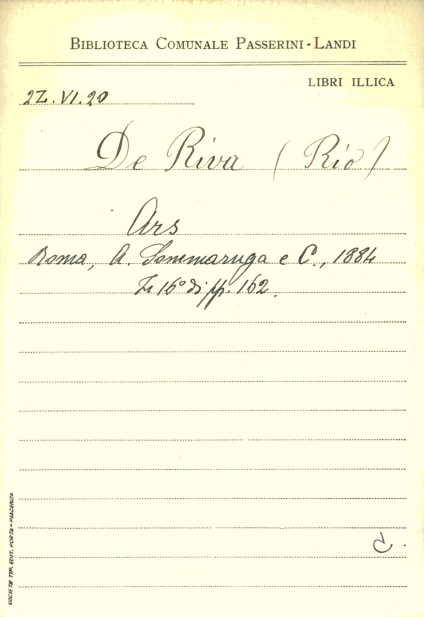 BIBLIOTECA COMUNALE PASSERINI-LANDI
LIBRI ILLICA
2Z.VI.20
De Riva (Rio)
Ars
Roma, A. Sommaruga e C., 1884
In 16° di pp. 162.
C.
SOCIETÀ TIP. EDIT. PORTA - PIACENZA